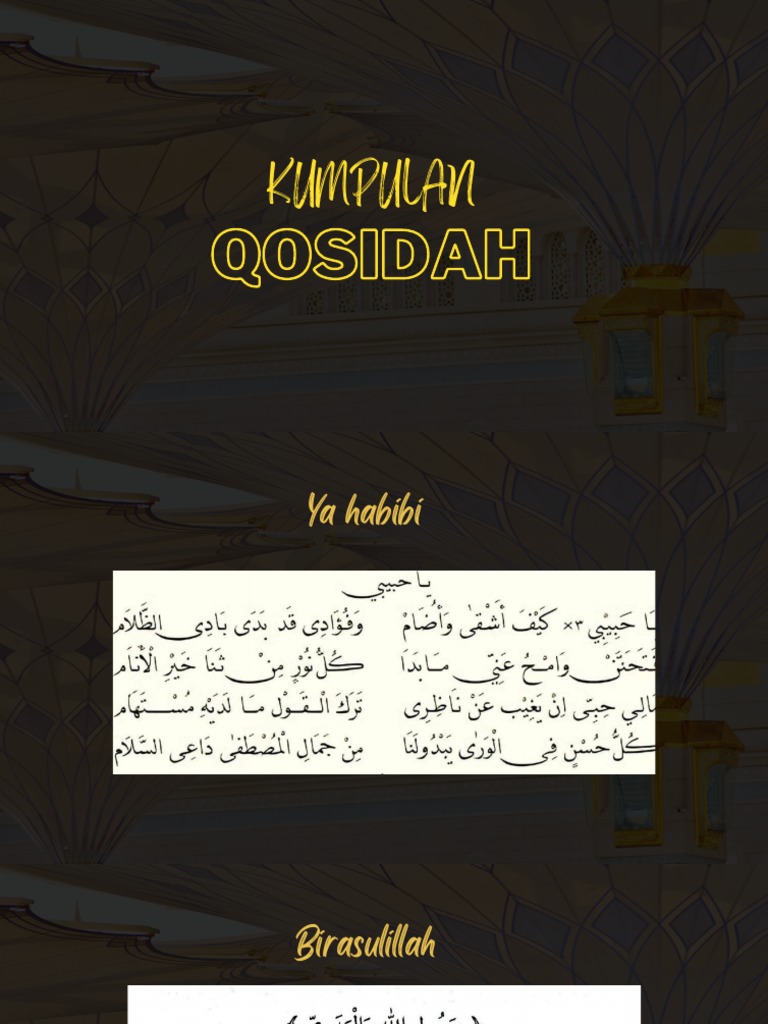 KUMPULAN
QOSIDAH
Ya habibi
يا حبيبي
يَا حَبِيْبِي ×٣ كَيْفَ أَشْقَى وَأُضَامْ وَفُؤَادِى قَد بَدَى بَادِى الظَّلَام
فَتَحَنَّنْ وَامْحُ عَنِّي مَابَدَا كُلُّ نُوْرٍ مِنْ ثَنَا خَيْرِ الْأَنَام
مَالِي حِبِّى اِنْ يَغِيْب عَنْ نَاظِرِى تَرَكَ الْقَوْل مَا لَدَيْهِ مُسْتَهَام
كُلُّ حُسْنٍ فِى الْوَرٰى يَبْدُولَنَا مِنْ جَمَالِ الْمُصْطَفٰى دَاعِى السَّلَام
Birasulillah